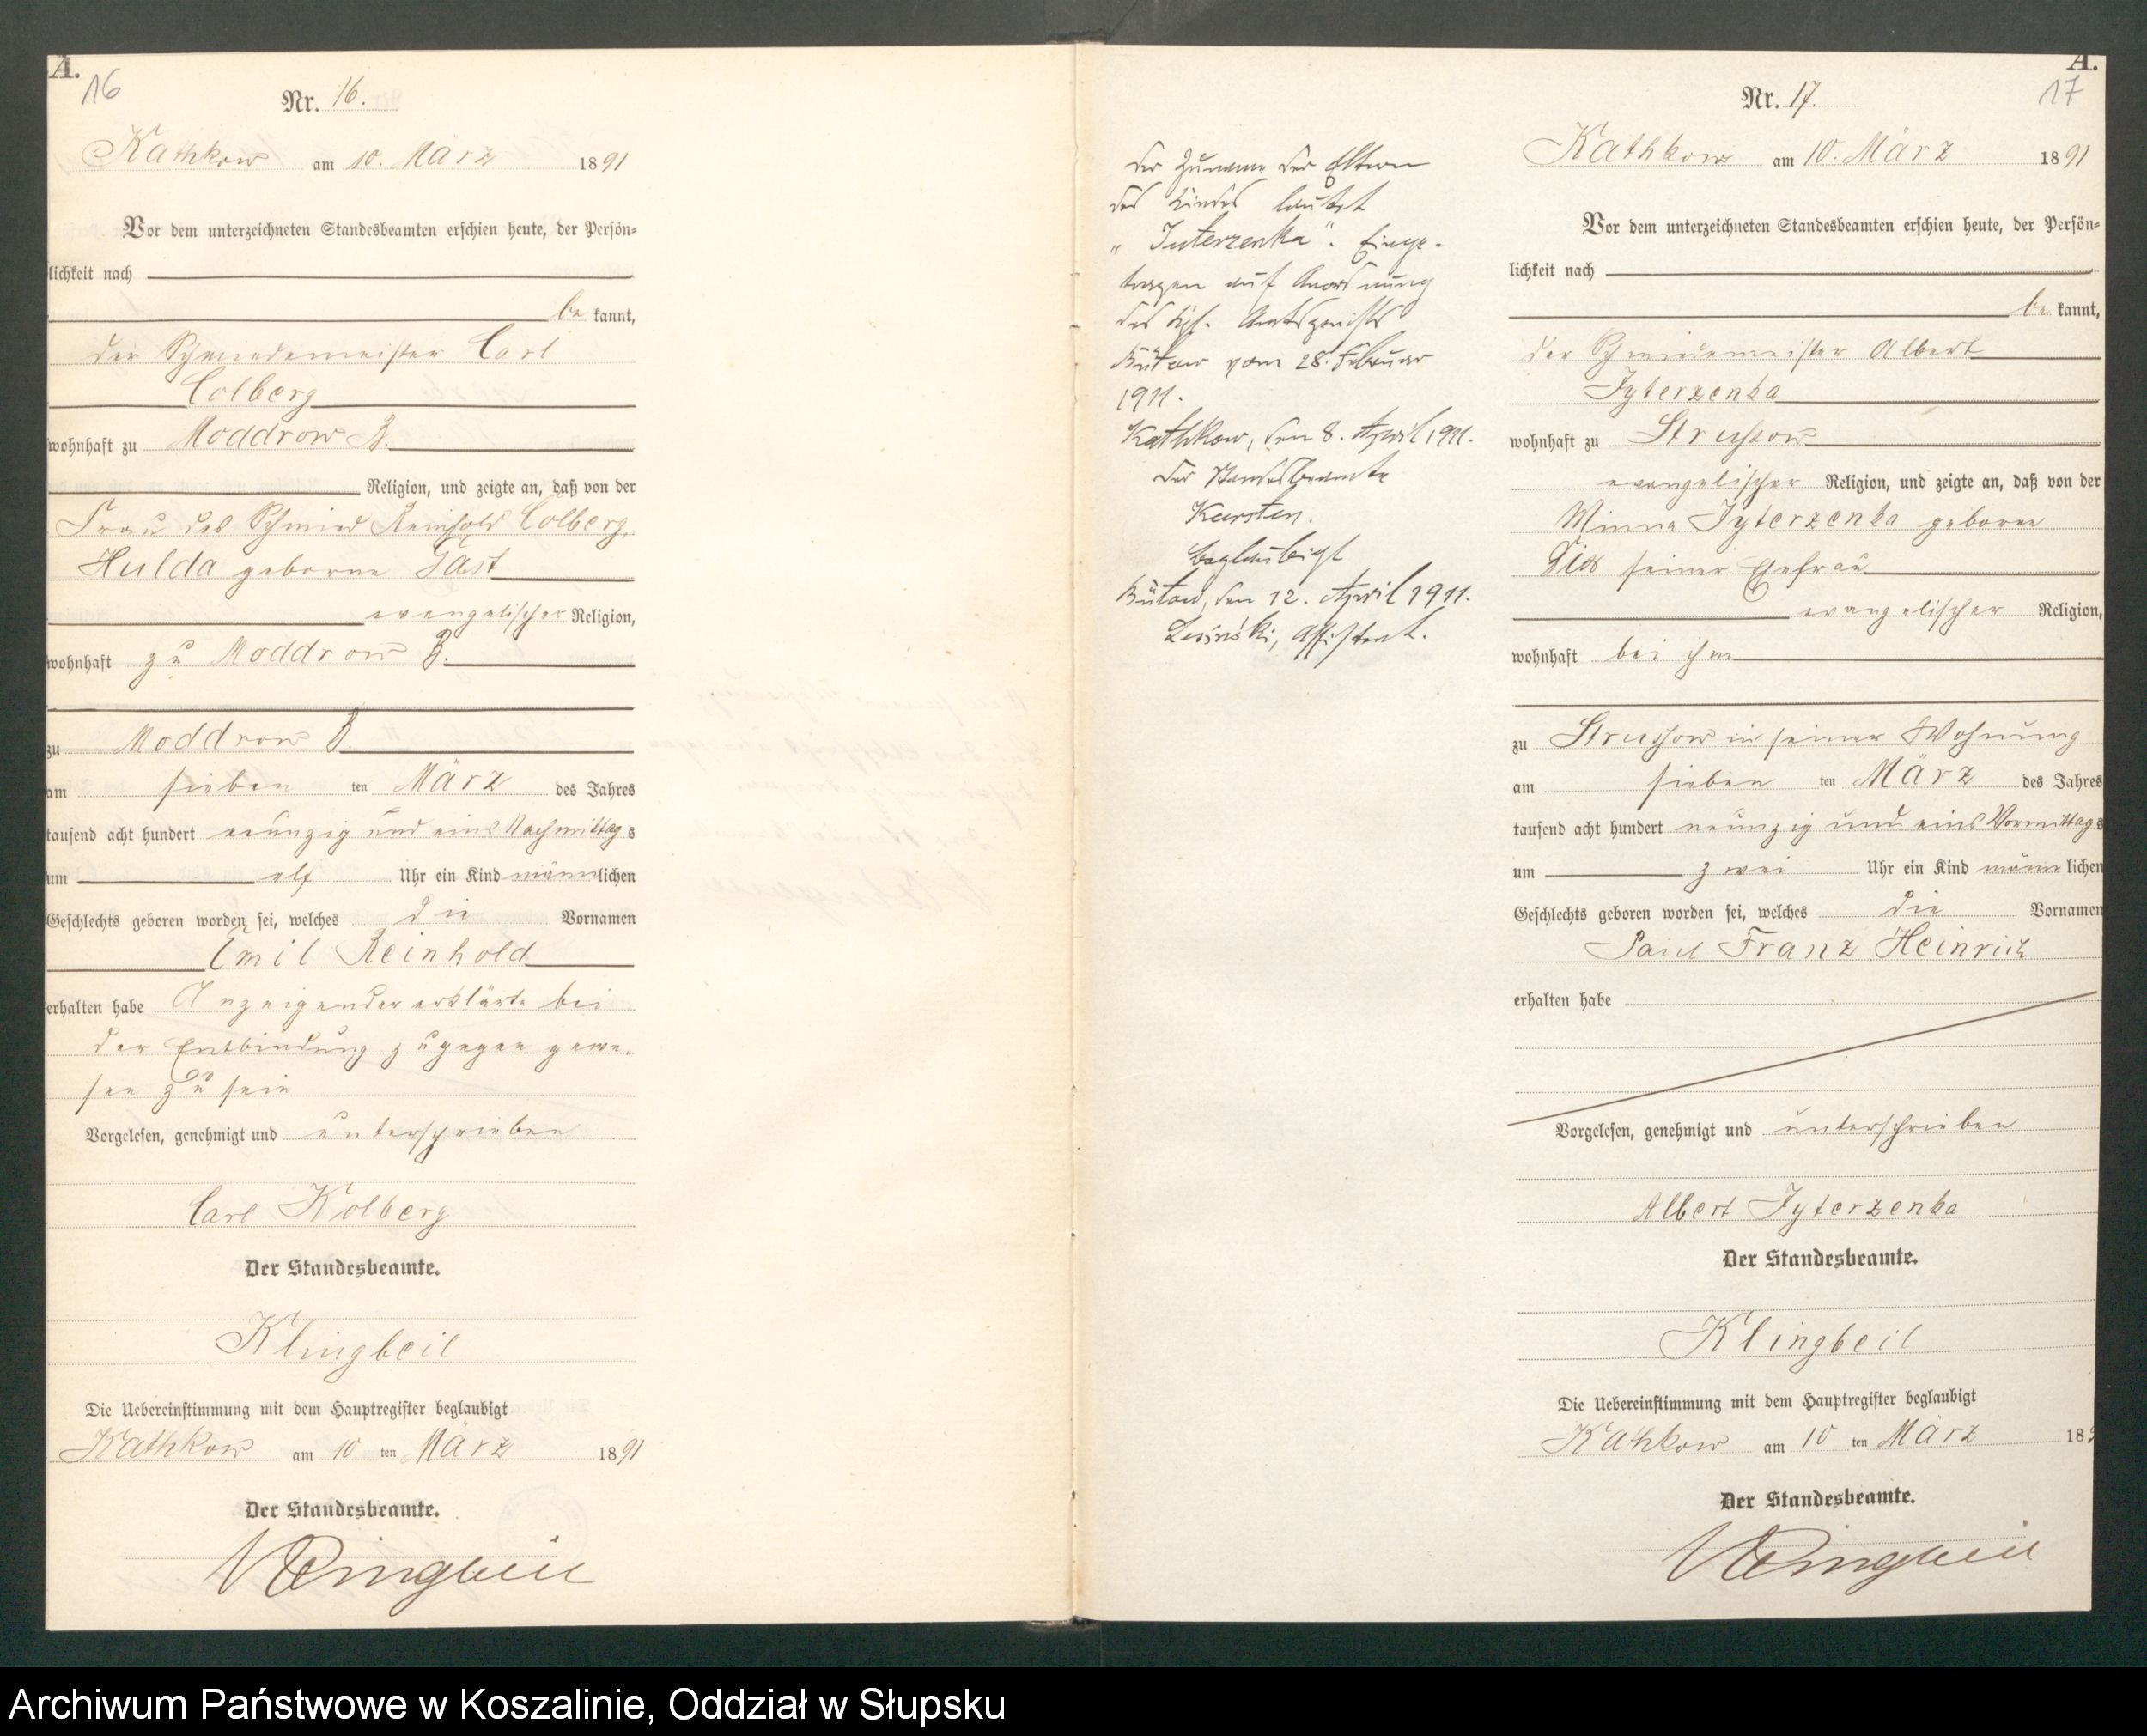 A.
16
Nr. 16.
Kathkow am 10. März 1891
Vor dem unterzeichneten Standesbeamten erschien heute, der Persön-
lichkeit nach
be kannt,
der Schmiedemeister Carl
Colberg
wohnhaft zu Moddrow B.
Religion, und zeigte an, daß von der
Frau des Schmied Reinhold Colberg,
Hulda geborne Gast
evangelischer Religion,
wohnhaft zu Moddrow B.
zu Moddrow B.
am sieben ten März des Jahres
tausend acht hundert neunzig und eins Nachmittag s
um elf Uhr ein Kind männlichen
Geschlechts geboren worden sei, welches die Vornamen
Emil Reinhold
erhalten habe Anzeigender erklärte bei
der Entbindung zugegen gewe-
sen zu sein
Vorgelesen, genehmigt und unterschrieben
Carl Kolberg
Der Standesbeamte.
Klingbeil
Die Uebereinstimmung mit dem Hauptregister beglaubigt
Kathkow am 10 ten März 1891
Der Standesbeamte.
Klingbeil
Der Zuname der Eltern
des Kindes lautet
„Juterzenka“. Einge-
tragen auf Anordnung
des Kgl. Amtsgerichts
Bütow vom 28. Februar
1911.
Kathkow, den 8. April 1911.
Der Standesbeamte
Karsten.
Beglaubigt
Bütow, den 12. April 1911.
Assistent.
A.
17
Nr. 17.
Kathkow am 10. März 1891
Vor dem unterzeichneten Standesbeamten erschien heute, der Persön-
lichkeit nach
be kannt,
der Schmiedemeister Albert
Jyterzenka
wohnhaft zu Strussow
evangelischer Religion, und zeigte an, daß von der
Minna Jyterzenka geborne
seiner Ehefrau
evangelischer Religion,
wohnhaft bei ihm
zu Strussow in seiner Wohnung
am sieben ten März des Jahres
tausend acht hundert neunzig und eins Vormittag s
um zwei Uhr ein Kind männlichen
Geschlechts geboren worden sei, welches die Vornamen
Paul Franz Heinrich
erhalten habe
Vorgelesen, genehmigt und unterschrieben
Albert Jyterzenka
Der Standesbeamte.
Klingbeil
Die Uebereinstimmung mit dem Hauptregister beglaubigt
Kathkow am 10 ten März 189
Der Standesbeamte.
Klingbeil
Archiwum Państwowe w Koszalinie, Oddział w Słupsku